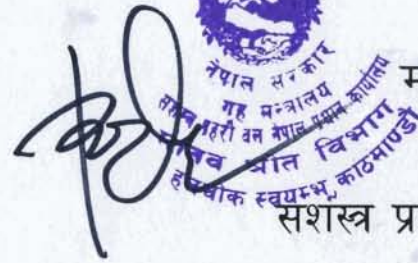 नेपाल सरकार
गृह मन्त्रालय
सशस्त्र प्रहरी बल नेपाल प्रधान कार्यालय
मानव स्रोत विभाग
हल्चोक स्वयम्भू, काठमाण्डौ
म
सशस्त्र प्र